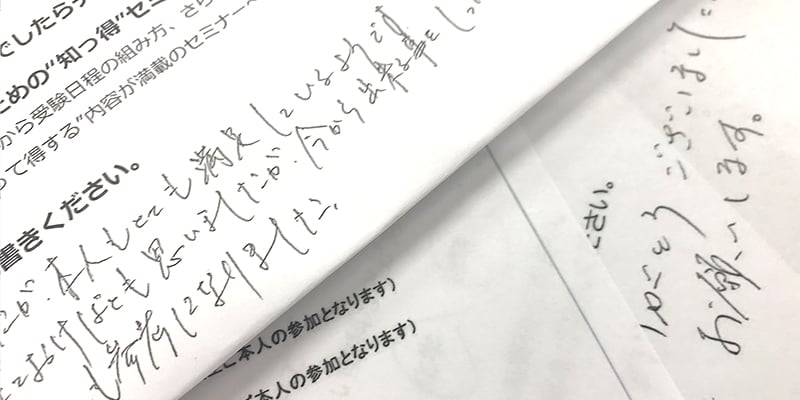 でしたら
ための“知っ得”セミ
から受験日程の組み方、さら
って得する”内容が満載のセミナーへ
書きください。
が、本人もとても満足しているようです
ておけばとも思いましたが、今から出来る事をしっ
になりました。
ださい。
ありがとうございました
お願いします。
ご本人の参加となります）
ご本人の参加となります）